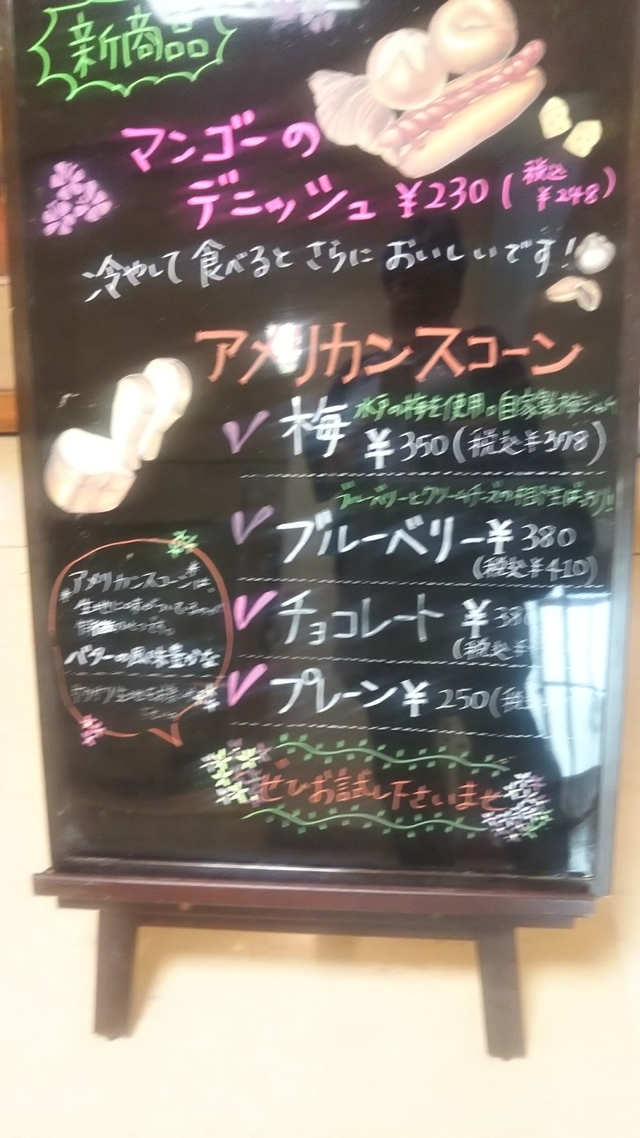 新商品
マンゴーの
デニッシュ ¥230(税込¥248)
冷やして食べるとさらにおいしいです!
アメリカンスコーン
水戸の梅を使用。自家製梅ジャム
梅 ¥350(税込¥378)
ブルーベリーとクリームチーズの相性
ブルーベリー ¥380
(税込¥410)
チョコレート ¥380
(税込¥
プレーン ¥250(税
アメリカンスコーンは、
生地に
バターの風味豊かな
ぜひお試し下さいませ